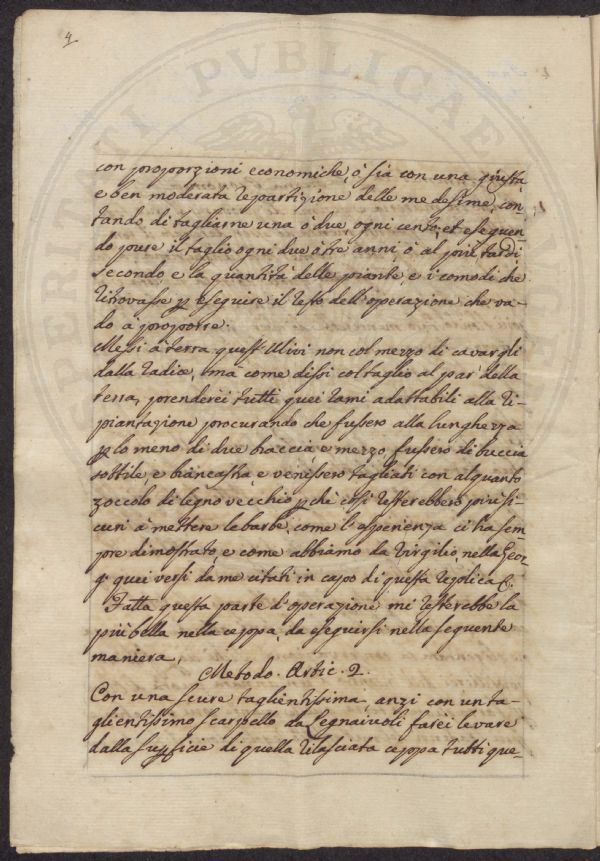 4
con proporzioni economiche, ò sia con una giusta,
e ben moderata repartizione delle medesime, con-
tando di tagliarne una ò due, ogni cento, et eseguen-
do pure il taglio ogni due o tre anni, ò al più tardi
secondo e la quantità delle piante, e i comodi che
ritrovasse p eseguire il resto dell'operazione che va-
do à proporre.
Messi à terra quest'Ulivi non col mezzo di cavargli
dalla radice, ma come dissi col taglio al par della
terra, prenderei tutti quei rami adattabili alla ri-
piantazione procurando che fussero alla lunghezza
p lo meno di due braccia, e mezzo, fussero di buccia
sottile, e biancastra, e venissero tagliati con alquanto
zoccolo di legno vecchio pchè così resterebbero più si-
curi à mettere le barbe, come l'esperienza ci ha sem-
pre dimostrato, e come abbiamo da Virgilio, nella Geor-
g. quei versi da me citati in capo di questa replica &.
Fatta questa parte d'operazione mi resterebbe la
più bella nella ceppa, da eseguirsi nella seguente
maniera.
Metodo. Artic. 2.
Con una scure taglientissima, anzi con un ta-
glientissimo scarpello da Legnaivoli farei levare
dalla supficie di quella rilasciata ceppa tutti que-
PVBLICAE